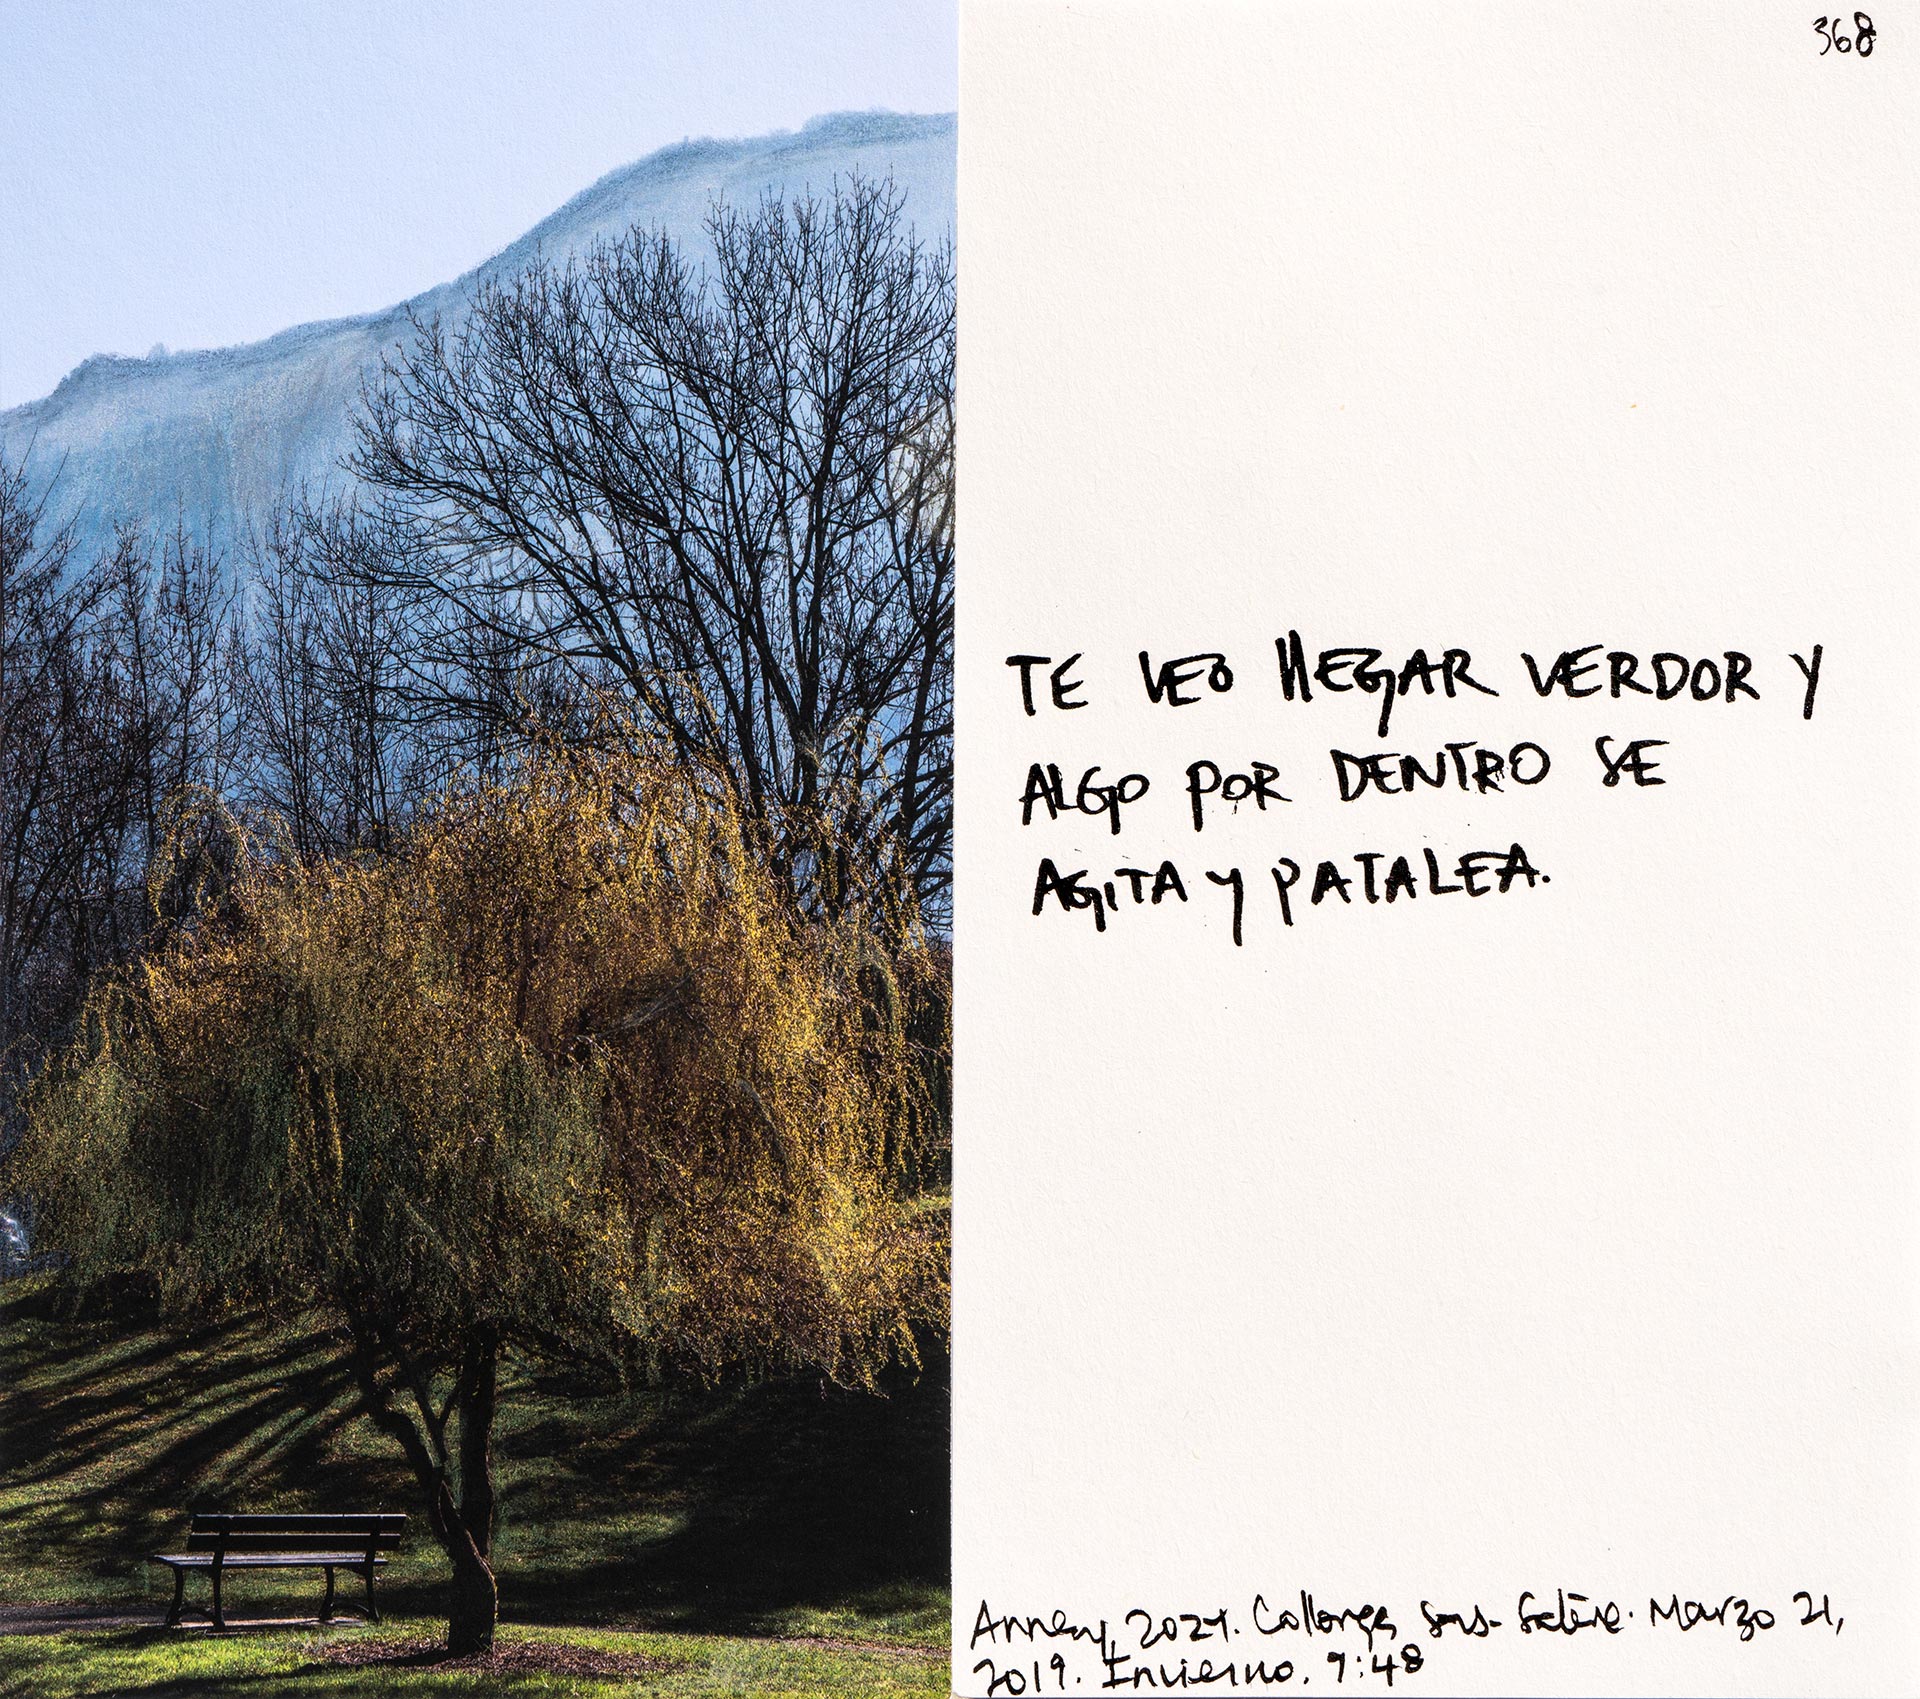 368
TE VEO LLEGAR VERDOR Y
ALGO POR DENTRO SE
AGITA Y PATALEA.
Annecy, 2021. Collonges sous-Salève. Marzo 21,
2019. Invierno. 7:48